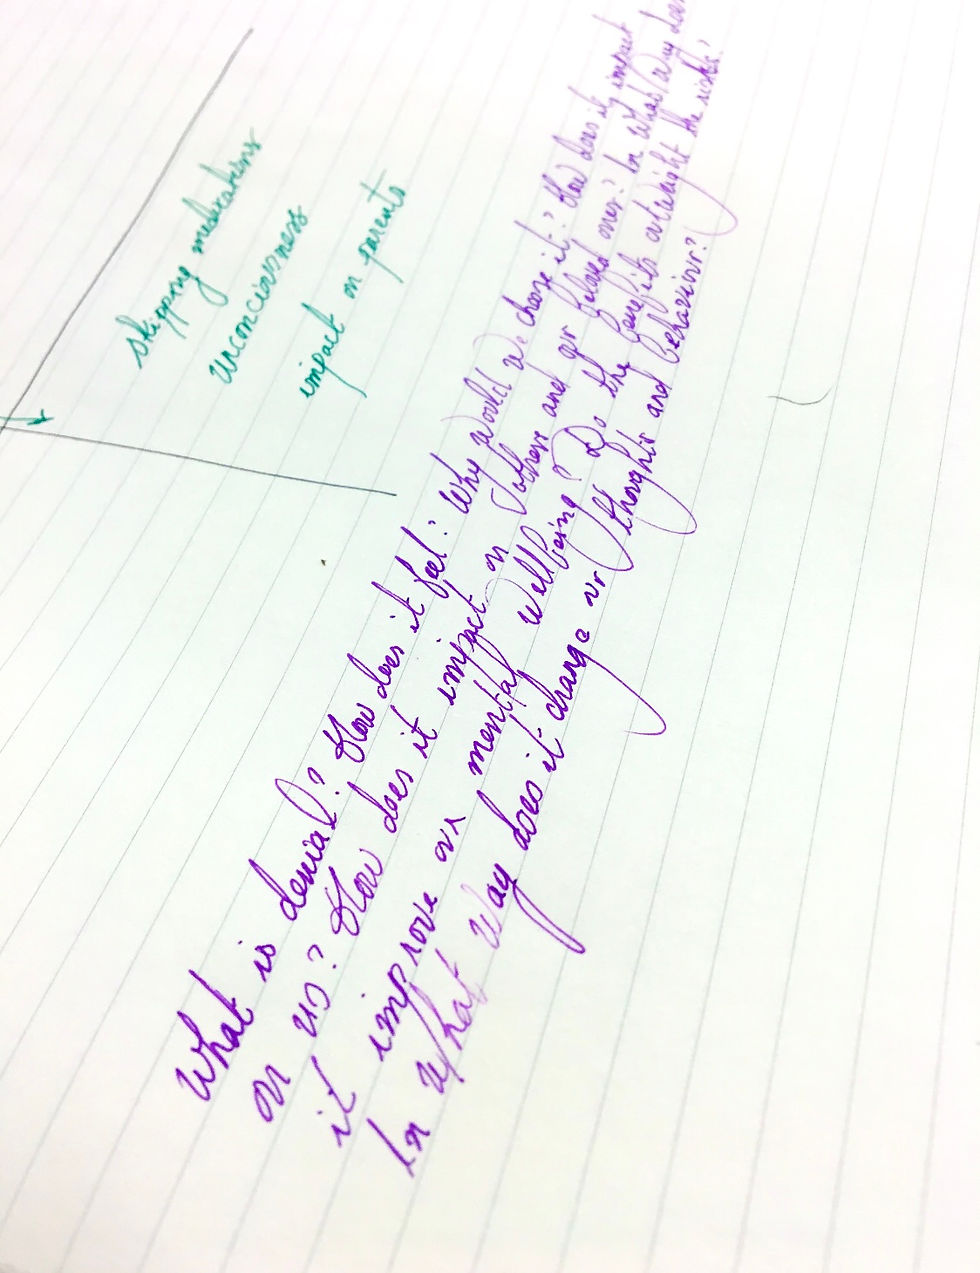 skipping medications
unconciesness
impact on parents
What is denial? How does it feel? Why would we choose it? How does it impact
on us? How does it impact on others and our beloved ones? In what way does
it improve our mental wellbeing? Do the benefits outweight the risks?
In what way does it change our thoughts and behaviour?